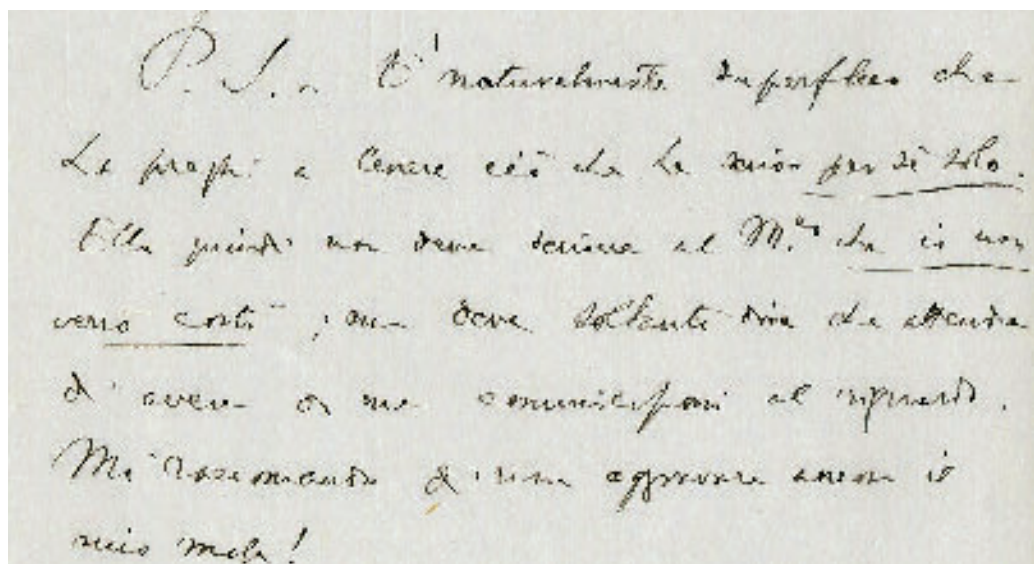 P. S. - E' naturalmente superfluo che
La preghi a tenere ciò che Le scrivo per sè solo.
Ella quindi non deve scrivere al M.ro che io non
verrò costì; ma deve soltanto dire che attende
d'avere da me comunicazioni al riguardo.
Mi raccomando di non aggravare ancora il
mio male!